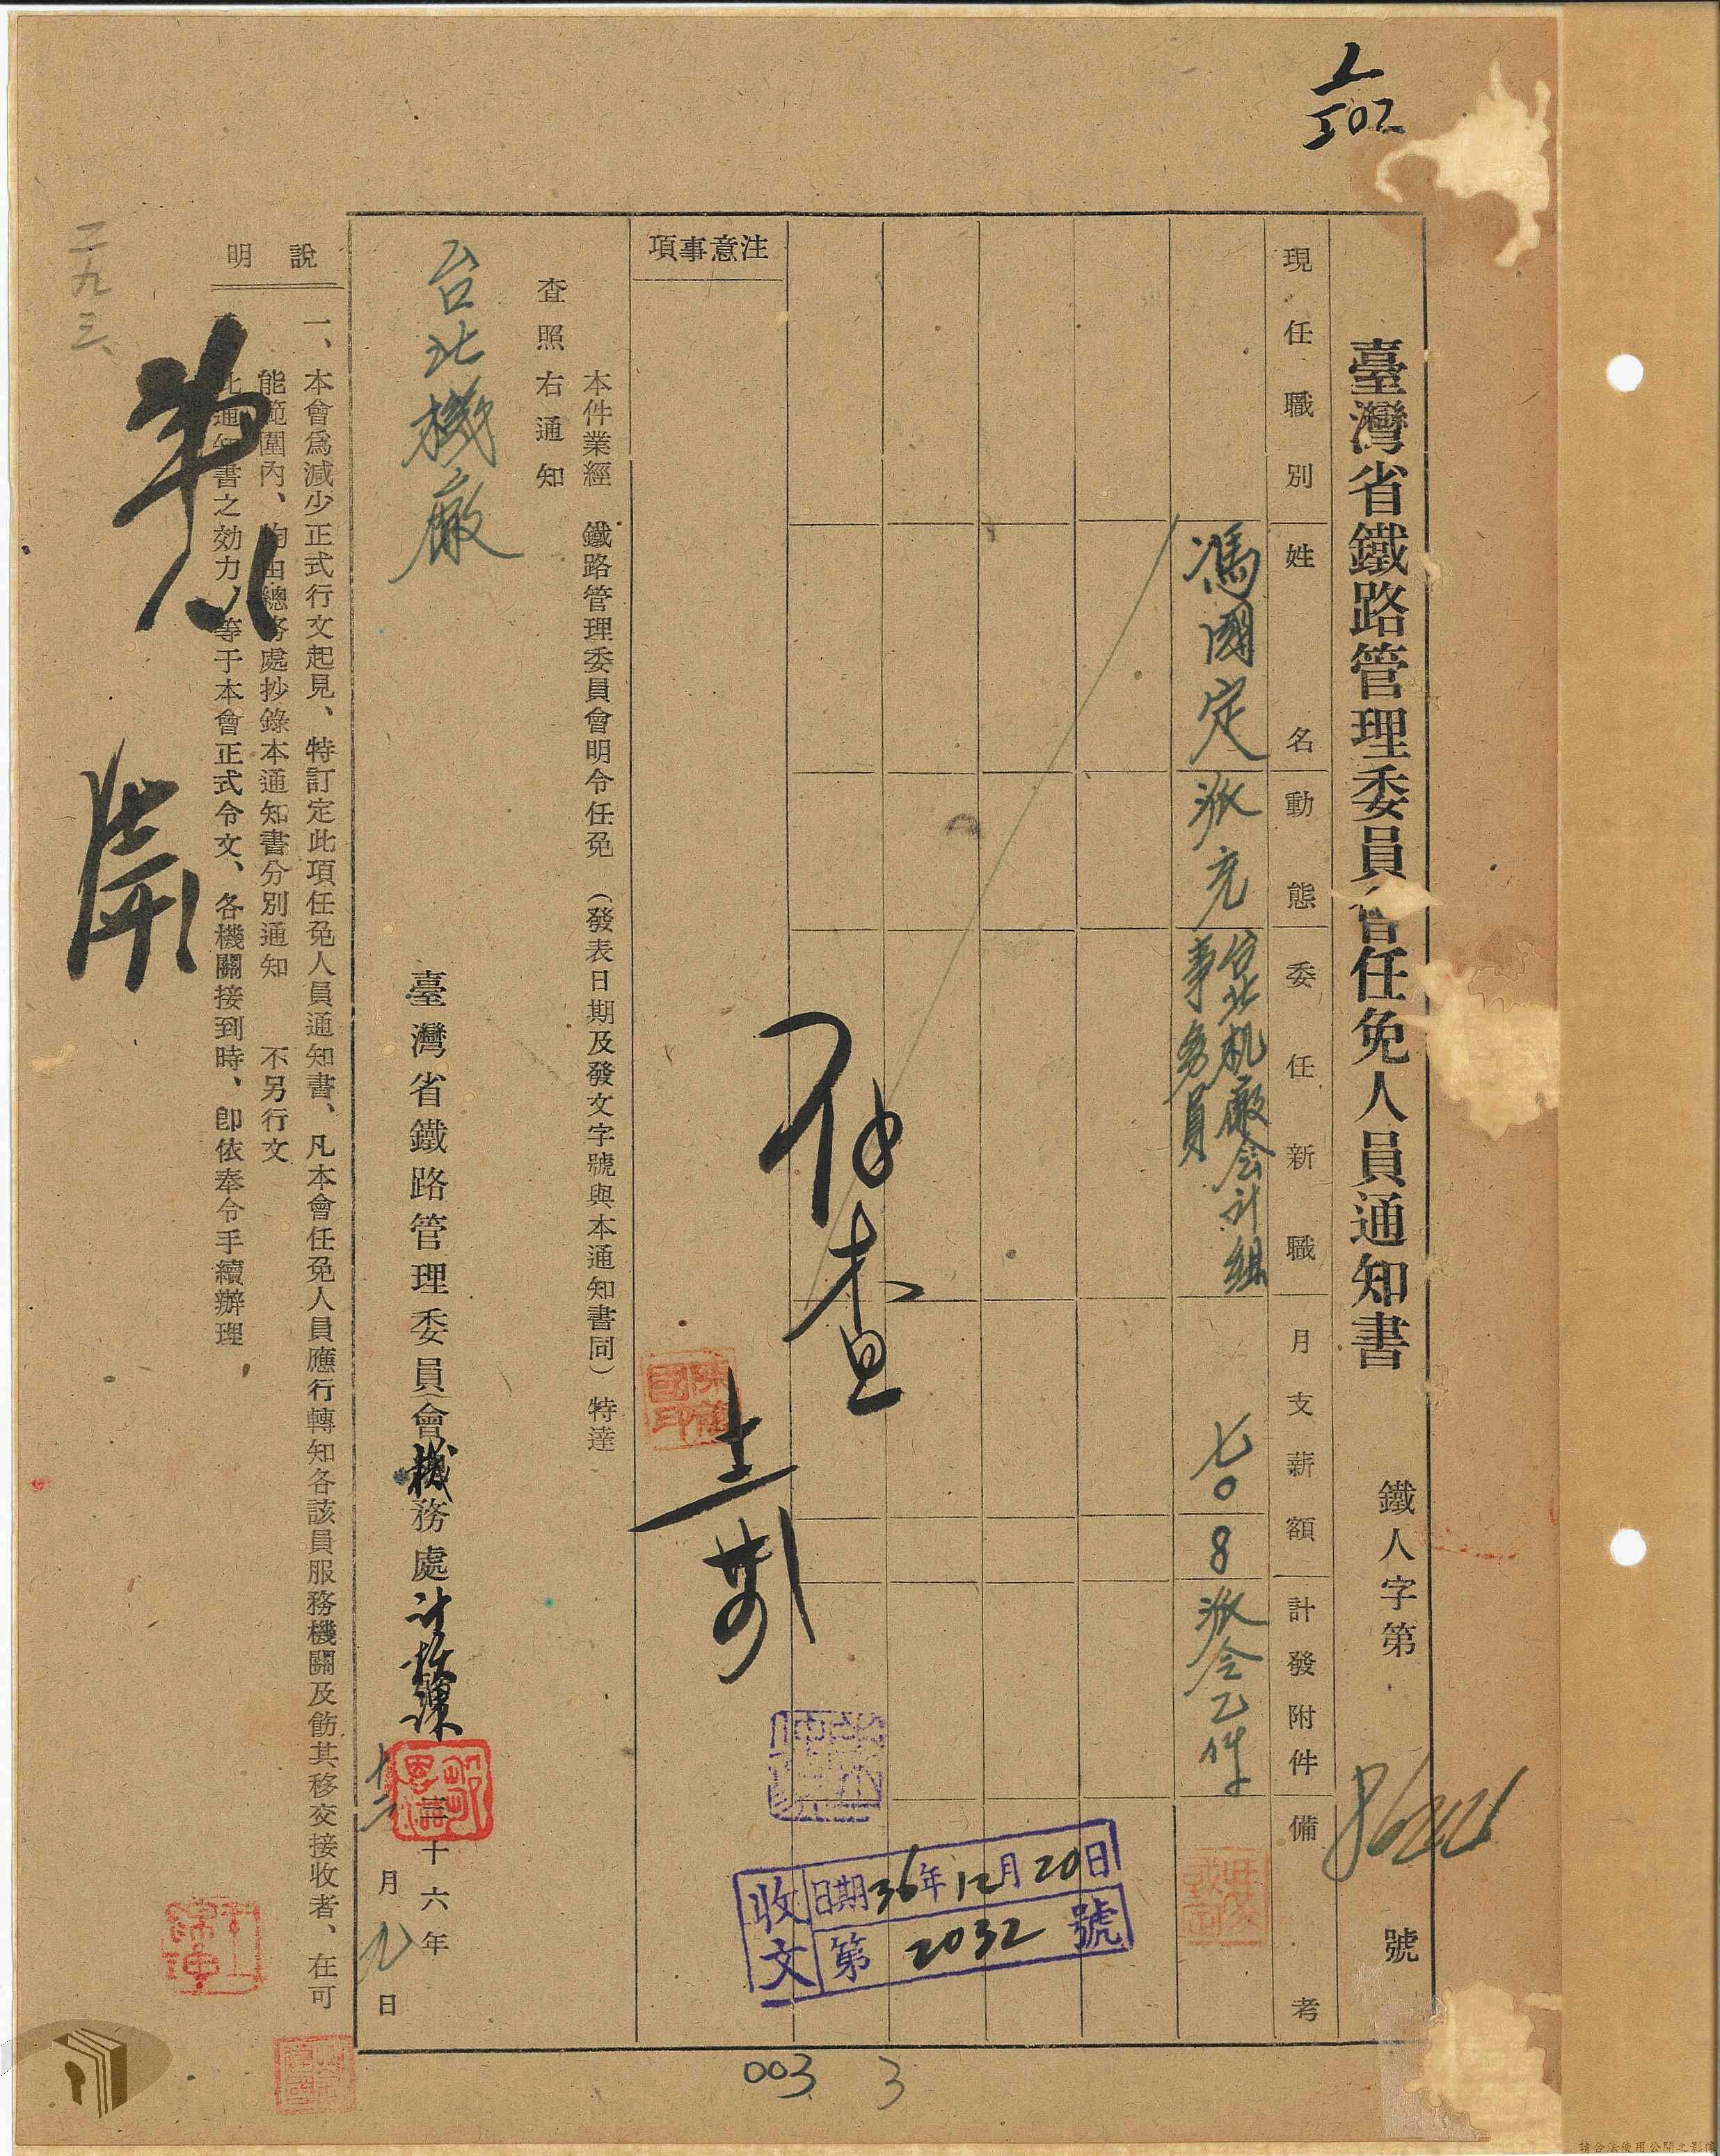 臺灣省鐵路管理委員會任免人員通知書
鐵人字第 號
現任職別
姓名
動態
委任新職
月支薪額
計發附件
備考
馮國定
派充
台北机廠会計組
事務員
七〇
8
派令乙件
注意事項
本件業經 鐵路管理委員會明令任免 (發表日期及發文字號與本通知書同) 特達
查照右通知
台北機廠
臺灣省鐵路管理委員會機務處
三十六年
十二月九日
說明
一、本會為減少正式行文起見、特訂定此項任免人員通知書、凡本會任免人員應行轉知各該員服務機關及飭其移交接收者、在可
能範圍內、均由總務處抄錄本通知書分別通知 不另行文
此通知書之効力、等于本會正式令文、各機關接到時、卽依奉令手續辦理
收文
日期36年12月20日
第2032號
二九三、
003
3
請合法使用公開之影像